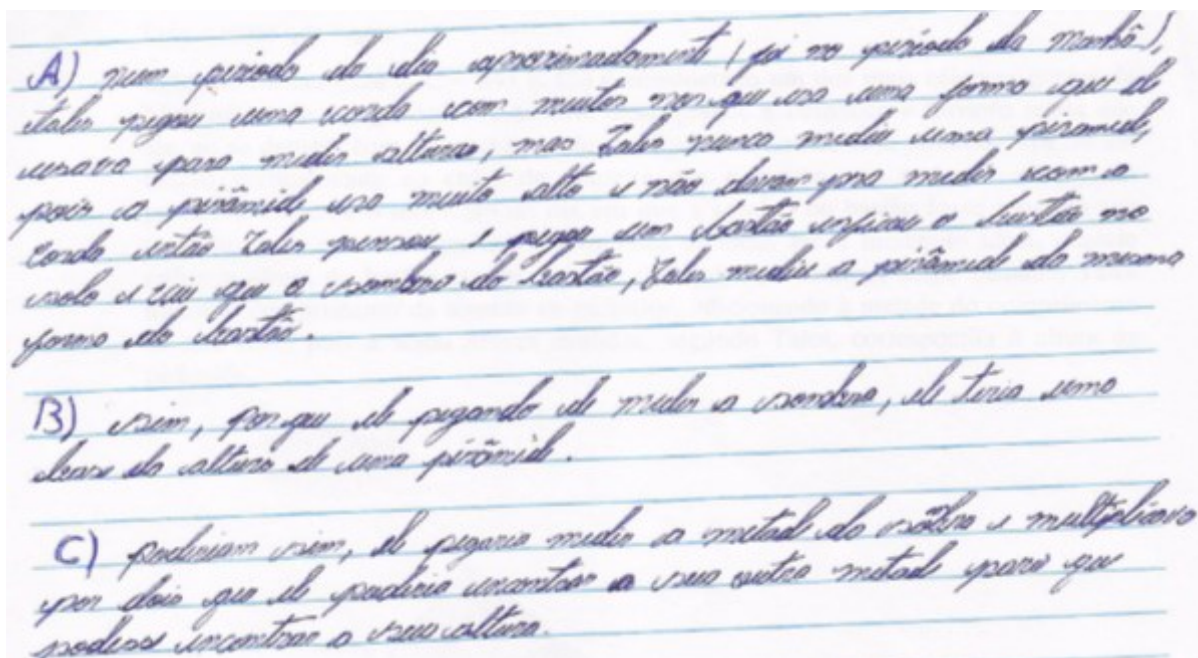 A) num periodo do dia aproximadamente (foi no periodo da manhã),
tales pegou uma corda com muitos nos que era uma forma que ele
usava para medir alturas, mas Tales nunca mediu uma piramide,
pois a pirâmide era muito alta e não dava pra medir com a
corda então Tales pensou e pegou um bastão enficou o bastão no
solo e viu que a sombra do bastão, Tales mediu a pirâmide da mesma
forma do bastão.
B) sim, por que ele pegando de medir a sombra, ele teria uma
base da altura de uma pirâmide.
C) poderiam sim, ele pegaria medir a metade do e multiplicava
por dois que ele poderia encontrar a sua outra metade para que
podesse encontrar a sua altura.